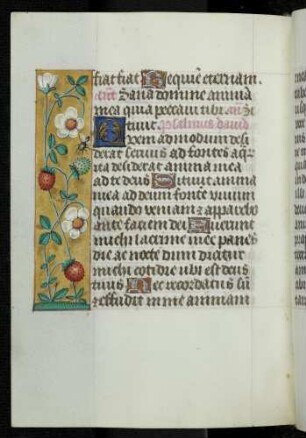 fiat fiat Requiē eternam.
Sana domine animā
mea quia peccavi tibi an̄ Si
tiuit psalmus dauid
Quem admodum desi
derat ceruus ad fontes aq̄
ita desiderat anima mea
ad te deus Sitiuit anima
mea ad deum fontē viuūm
quando veniam & apparebo
ante faciem dei Fuerunt
michi lacrime mee panes
die ac nocte dum dicitur
michi cotidie vbi est deus
tuus Hec recordatus sū
& effudit in me animam